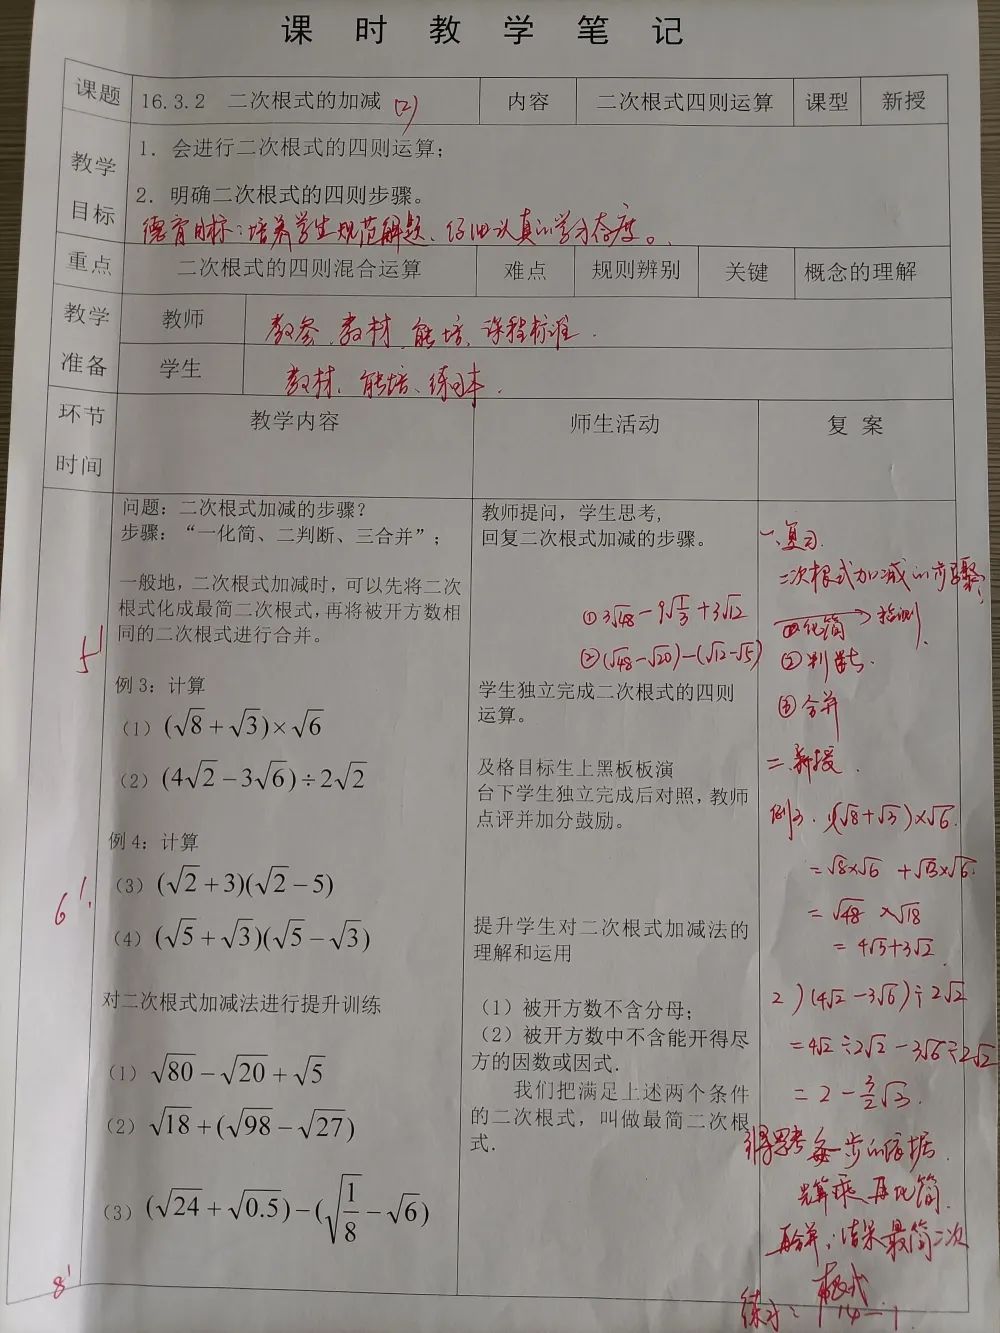 课时教学笔记
课题 16.3.2 二次根式的加减 (2) 内容 二次根式四则运算 课型 新授
教学目标
1. 会进行二次根式的四则运算；
2. 明确二次根式的四则步骤。
德育目标：培养学生规范解题、仔细认真的学习态度。
重点 二次根式的四则混合运算 难点 规则辨别 关键 概念的理解
教学准备
教师 教参、教材、能培、课程标准.
学生 教材、能培、练习本.
环节时间 教学内容 师生活动 复案
5'
问题：二次根式加减的步骤？
步骤：“一化简、二判断、三合并”；
一般地，二次根式加减时，可以先将二次
根式化成最简二次根式，再将被开方数相
同的二次根式进行合并。
例 3：计算
（1）(√8+√3)×√6
（2）(4√2−3√6)÷2√2
6'.
例 4：计算
（3）(√2+3)(√2−5)
（4）(√5+√3)(√5−√3)
对二次根式加减法进行提升训练
（1）√80−√20+√5
（2）√18+(√98−√27)
（3）(√24+√0.5)−(√(1/8)−√6)
8'
教师提问，学生思考，
回复二次根式加减的步骤。
①3√48−9√(1/3)+3√12
②(√48−√20)−(√12−√5)
学生独立完成二次根式的四则
运算。
及格目标生上黑板板演
台下学生独立完成后对照，教师
点评并加分鼓励。
提升学生对二次根式加减法的
理解和运用
（1）被开方数不含分母；
（2）被开方数中不含能开得尽
方的因数或因式.
我们把满足上述两个条件
的二次根式，叫做最简二次根
式.
一、复习.
二次根式加减的步骤
化简 → 检测
②判断.
③合并
二、新授.
例3. 1)(√8+√3)×√6.
=√8×√6+√3×√6.
=√48×√18
=4√3+3√2.
2)(4√2−3√6)÷2√2
=4√2÷2√2−3√6÷2√2
=2−3/2√3.
引导思考每一步的依据.
先算乘 再化简
再合并，结果最简二次
根式
练习：P14−1.